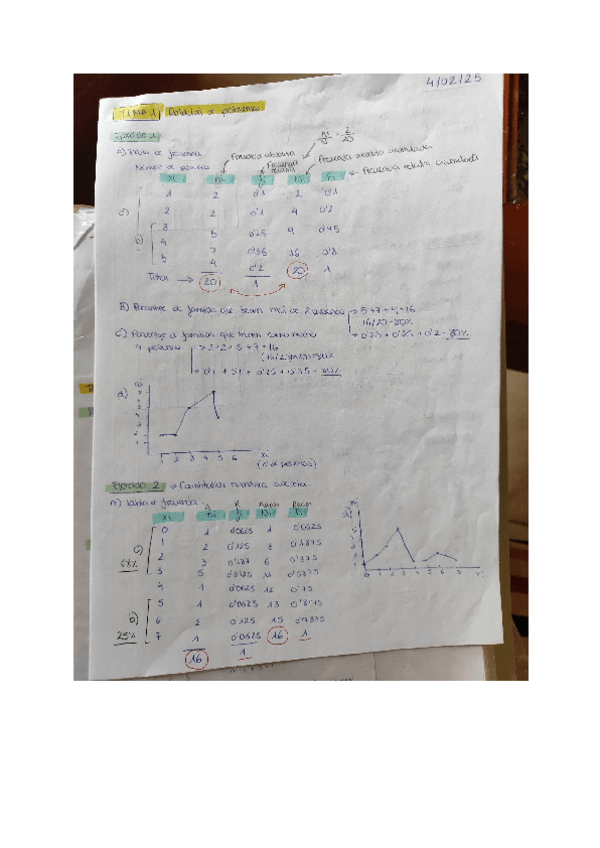 4/02/25
TEMA 1 Relación de problemas
Ejercicio 1
A) Tabla de frecuencia
Frecuencia absoluta
Frecuencia relativa
ni/N = 2/20
Frecuencia absoluta acumulada
Número de personas
xi ni fi Ni Fi → Frecuencia relativa acumulada
1 2 0'1 2 0'1
c) 2 2 0'1 4 0'2
3 5 0'25 9 0'45
b) 4 7 0'35 16 0'8
5 4 0'2 20 1
Total → 20 1
B) Porcentaje de familias que tienen más de 2 personas → 5+7+4=16
16/20 = 80%
→ 0'25 + 0'35 + 0'2 = 80%
C) Porcentaje de familias que tienen como máximo
4 personas → 2+2+5+7=16
→ 0'1 + 0'1 + 0'25 + 0'35 = 80%
d) ni
1 2 3 4 5 6 xi
(nº de personas)
Ejercicio 2 → Cuantitativa numérica discreta
A) Tabla de frecuencia
xi ni fi Ni Fi
0 1 0'0625 1 0'0625
c) 1 2 0'125 3 0'1875
2 3 0'187 6 0'375
3 5 0'3125 11 0'6875
4 1 0'0625 12 0'75
5 1 0'0625 13 0'8125
b) 6 2 0'125 15 0'9375
25% 7 1 0'0625 16 1
16 1